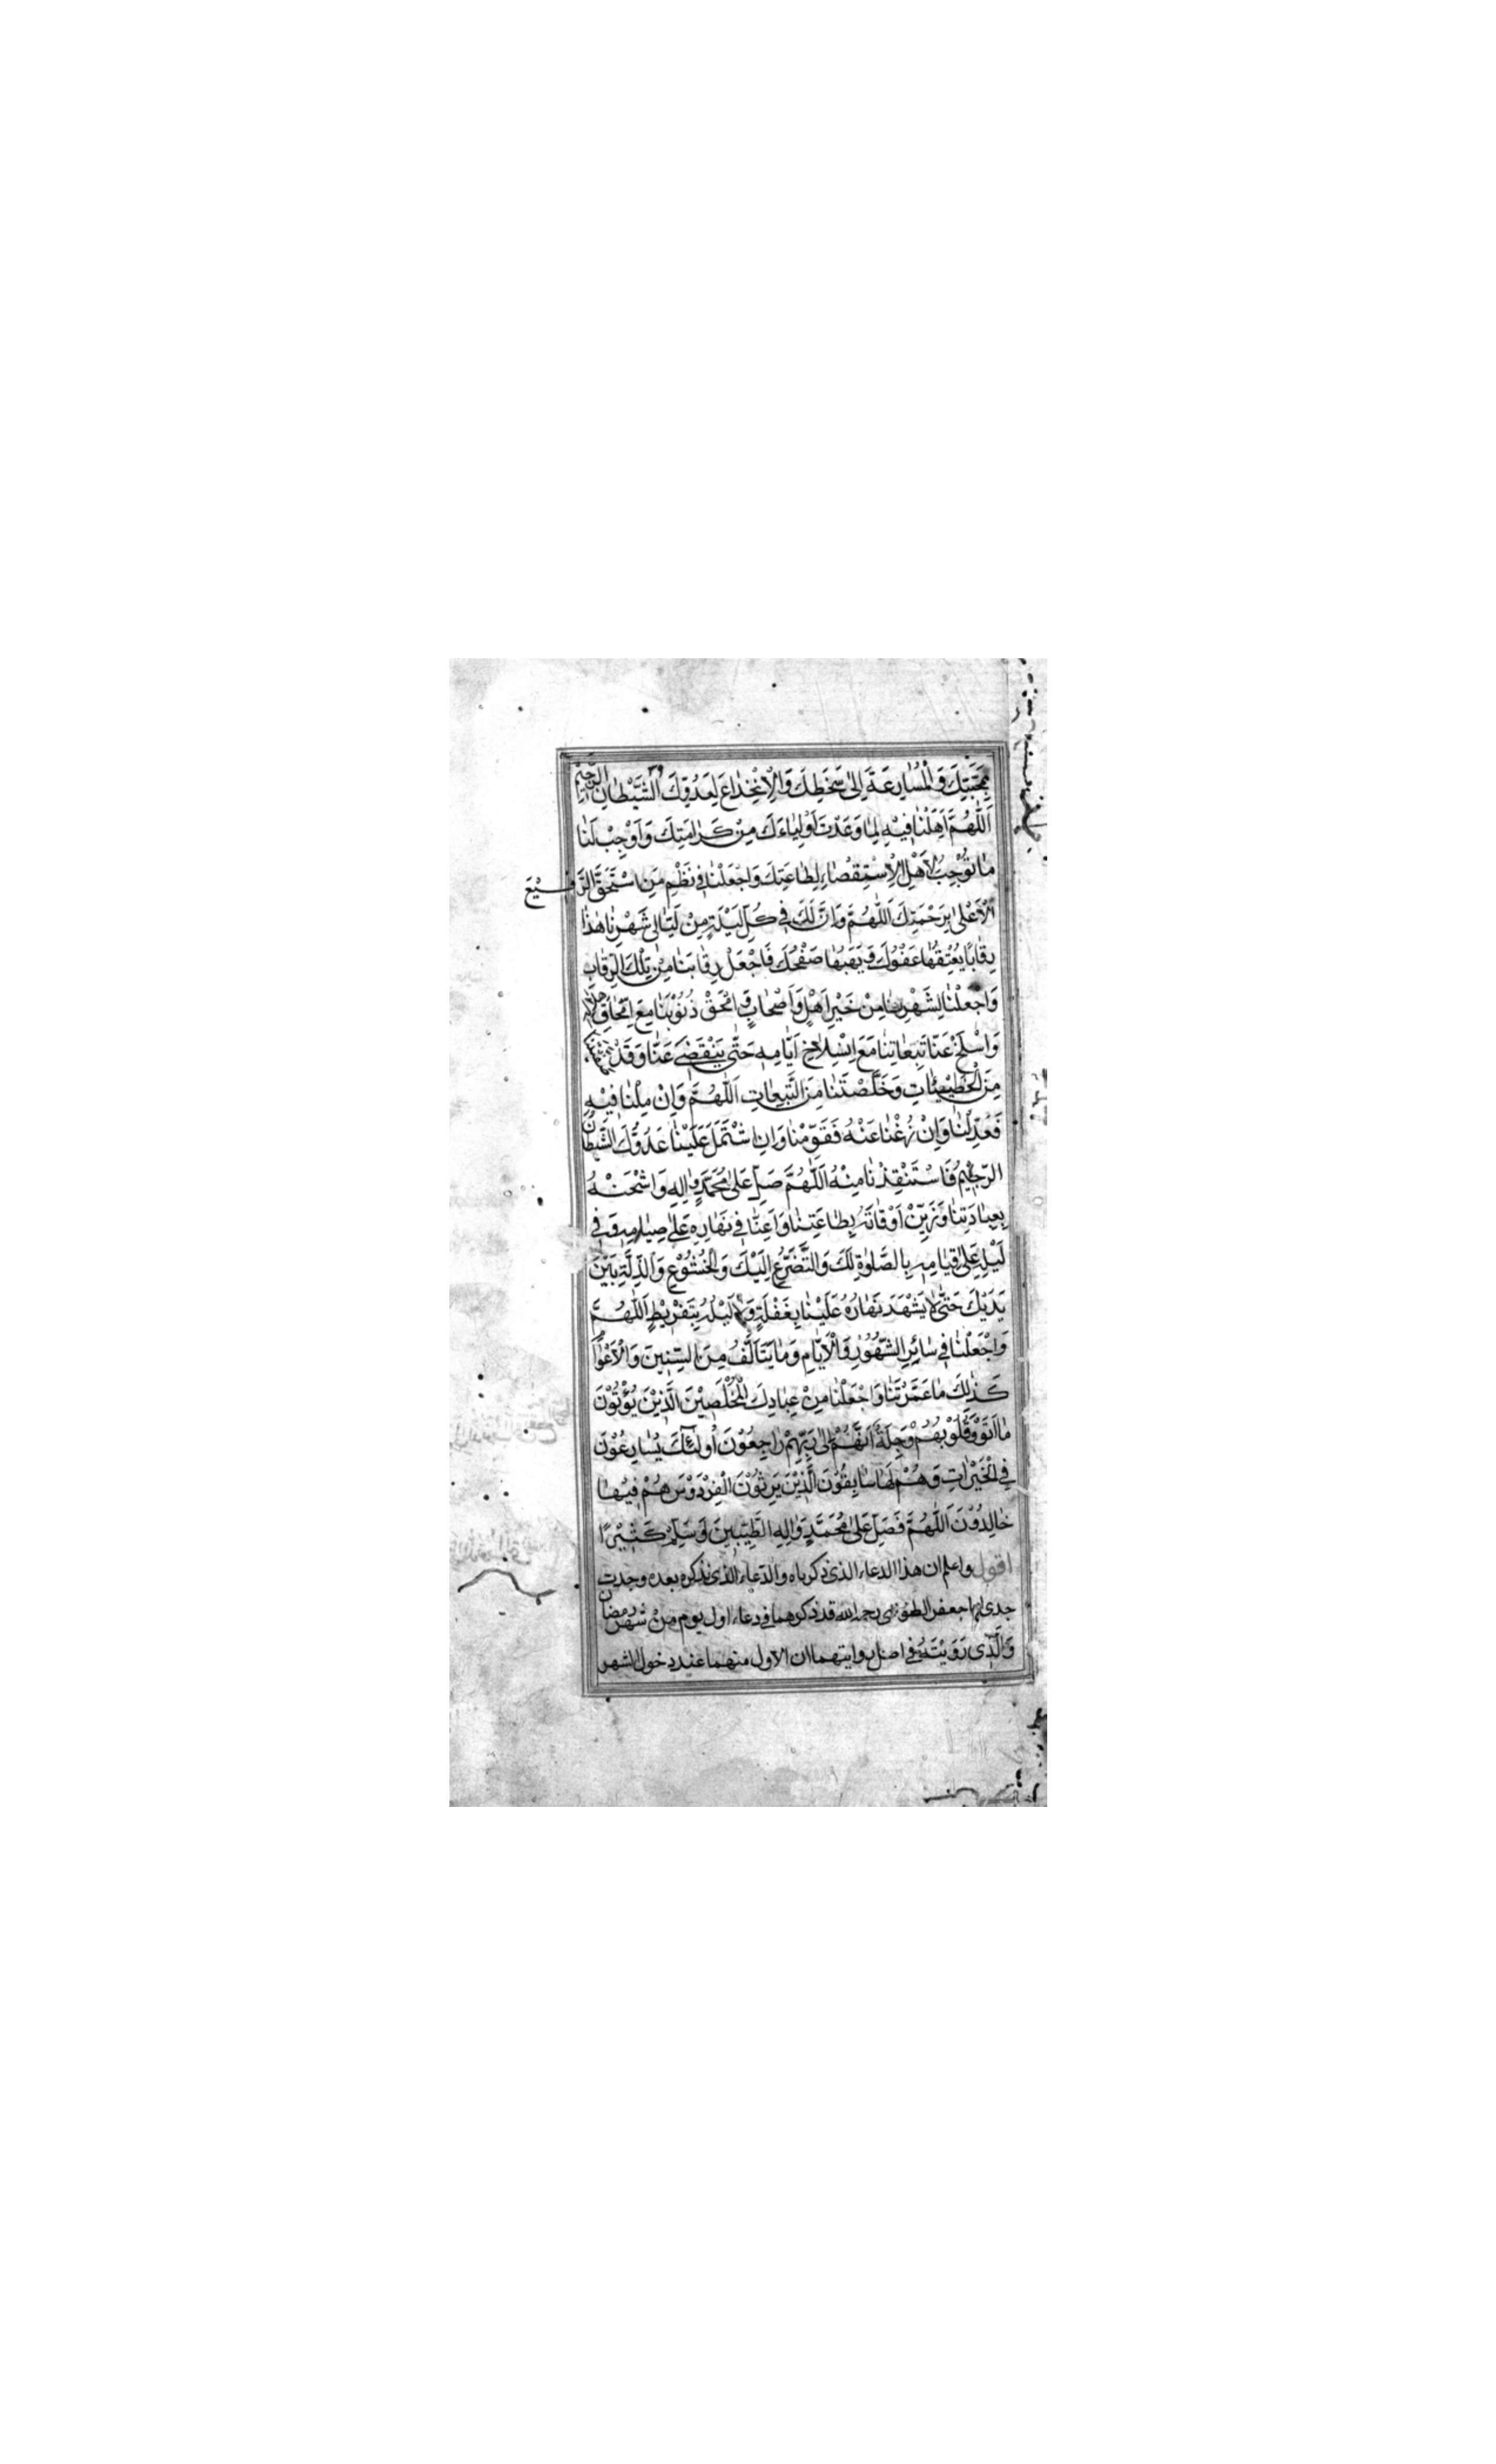 بِمَحَبَّتِكَ وَالْمُسٰارِعَةِ اِلىٰ سَخَطِكَ وَالْاِنْخِدٰاعِ لِعَدُوِّكَ الشَّيْطٰانِ الرَّجيمِ
اَللّٰهُمَّ اَهِّلْنٰا فيهِ لِمٰا وَعَدْتَ اَوْلِيٰاءَكَ مِنْ كَرٰامَتِكَ وَاَوْجِبْ لَنٰا
مٰا تُوْجِبُ لِاَهْلِ الْاِسْتِقْصٰاءِ لِطٰاعَتِكَ وَاجْعَلْنٰا فى نَظْمِ مَنِ اسْتَحَقَّ الرَّفيْعَ
الْاَعْلىٰ بِرَحْمَتِكَ اَللّٰهُمَّ وَاِنَّ لَكَ فى كُلِّ لَيْلَةٍ مِنْ لَيٰالى شَهْرِنٰا هٰذٰا
رِقٰابًا يُعْتِقُهٰا عَفْوُكَ وَيَهَبُهٰا صَفْحُكَ فَاجْعَلْ رِقٰابَنٰا مِنْ تِلْكَ الرِّقٰابِ
وَاجْعَلْنٰا لِشَهْرِنٰا مِنْ خَيْرِ اَهْلٍ وَاَصْحٰابٍ وَامْحَقْ ذُنُوْبَنٰا مَعَ اِمْحٰاقِ هِلٰالِهِ
وَاسْلَخْ عَنّٰا تَبِعٰاتِنٰا مَعَ انْسِلاٰخِ اَيّٰامِهِ حَتّٰى يَنْقَضِىَ عَنّٰا وَقَدْ
مِنَ الْخَطيئٰاتِ وَخَلَّصْتَنٰا مِنَ التَّبِعٰاتِ اَللّٰهُمَّ وَاِنْ مِلْنٰا فيْهِ
فَعَدِّلْنٰا وَاِنْ زُغْنٰا عَنْهُ فَقَوِّمْنٰا وَاِنِ اشْتَمَلَ عَلَيْنٰا عَدُوُّكَ الشَّيْطٰانُ
الرَّجيْمُ فَاسْتَنْقِذْنٰا مِنْهُ اَللّٰهُمَّ صَلِّ عَلىٰ مُحَمَّدٍ وَاٰلِهِ وَاشْحَنْهُ
بِعِبٰادَتِنٰا وَزَيِّنْ اَوْقٰاتَهُ بِطٰاعَتِنٰا وَاَعِنّٰا فى نَهٰارِهِ عَلىٰ صِيٰامِهِ وَفى
لَيْلِهِ عَلىٰ قِيٰامِهِ بِالصَّلوٰةِ لَكَ وَالتَّضَرُّعِ اِلَيْكَ وَالْخُشُوْعِ وَالذِّلَّةِ بَيْنَ
يَدَيْكَ حَتّٰى لاٰ يَشْهَدَ نَهٰارُهُ عَلَيْنٰا بِغَفْلَةٍ وَلاٰ لَيْلُهُ بِتَفْريْطٍ اَللّٰهُمَّ
وَاجْعَلْنٰا فى سٰائِرِ الشُّهُوْرِ وَالْاَيّٰامِ وَمٰا يَتَاَلَّفُ مِنَ السِّنيْنَ وَالْاَعْوٰامِ
كَذٰلِكَ مٰا عَمَّرْتَنٰا وَاجْعَلْنٰا مِنْ عِبٰادِكَ الْمُخْلَصِيْنَ الَّذيْنَ يُؤْتُوْنَ
مٰا اٰتَوْا وَقُلُوْبُهُمْ وَجِلَةٌ اَنَّهُمْ اِلىٰ رَبِّهِمْ رٰاجِعُوْنَ اُولٰئِكَ يُسٰارِعُوْنَ
فِى الْخَيْرٰاتِ وَهُمْ لَهٰا سٰابِقُوْنَ الَّذيْنَ يَرِثُوْنَ الْفِرْدَوْسَ هُمْ فيْهٰا
خٰالِدُوْنَ اَللّٰهُمَّ فَصَلِّ عَلىٰ مُحَمَّدٍ وَاٰلِهِ الطَّيِّبيْنَ وَسَلِّمْ كَثيْرًا
اقول واعلم ان هذا الدعاء الذى ذكرناه والدّعاء الذى نذكره بعده وجدت
جدى ابا جعفر الطوسى رحمه الله قد ذكرهما فى دعاء اول يوم من شهر رمضان
وَالَّذى رَوَيْتَهُ فى اصل روايتهما ان الاول منهما عند دخول الشهر